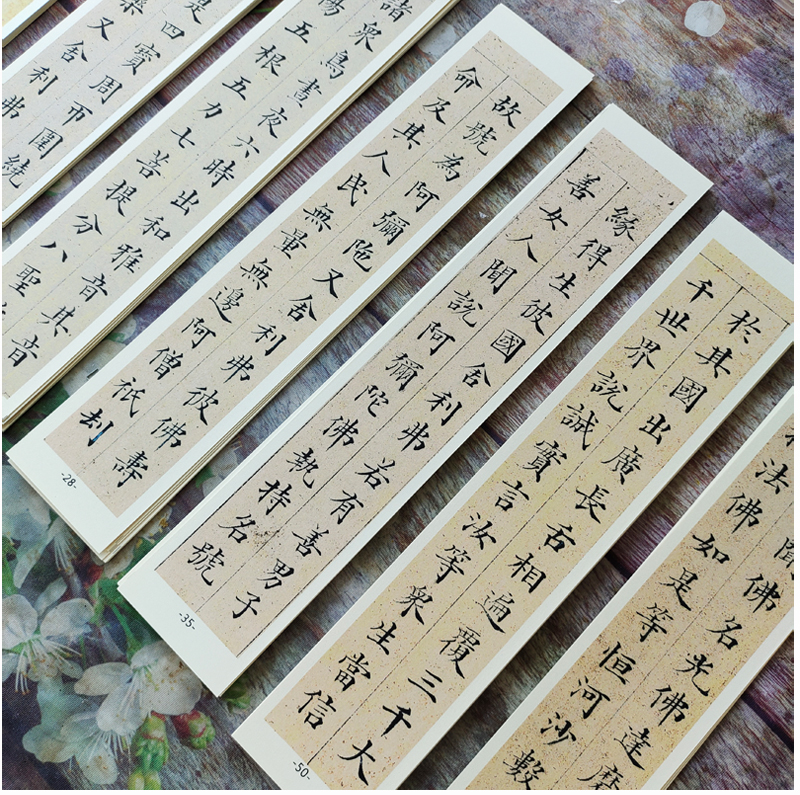 是四寶周帀圍繞
樂又舍利弗
諸眾鳥晝夜六時出和雅音其音
暢五根五力七菩提分八聖
故號為阿彌陁又舍利弗彼佛壽
命及其人民無量無邊阿僧祇劫
-28-
緣得生彼國舍利弗若有善男子
善女人聞說阿彌陀佛執持名號
-35-
於其國出廣長舌相遍覆三千大
千世界說誠實言汝等眾生當信
-50-
聞佛名光佛達磨
法佛如是等恒河沙數